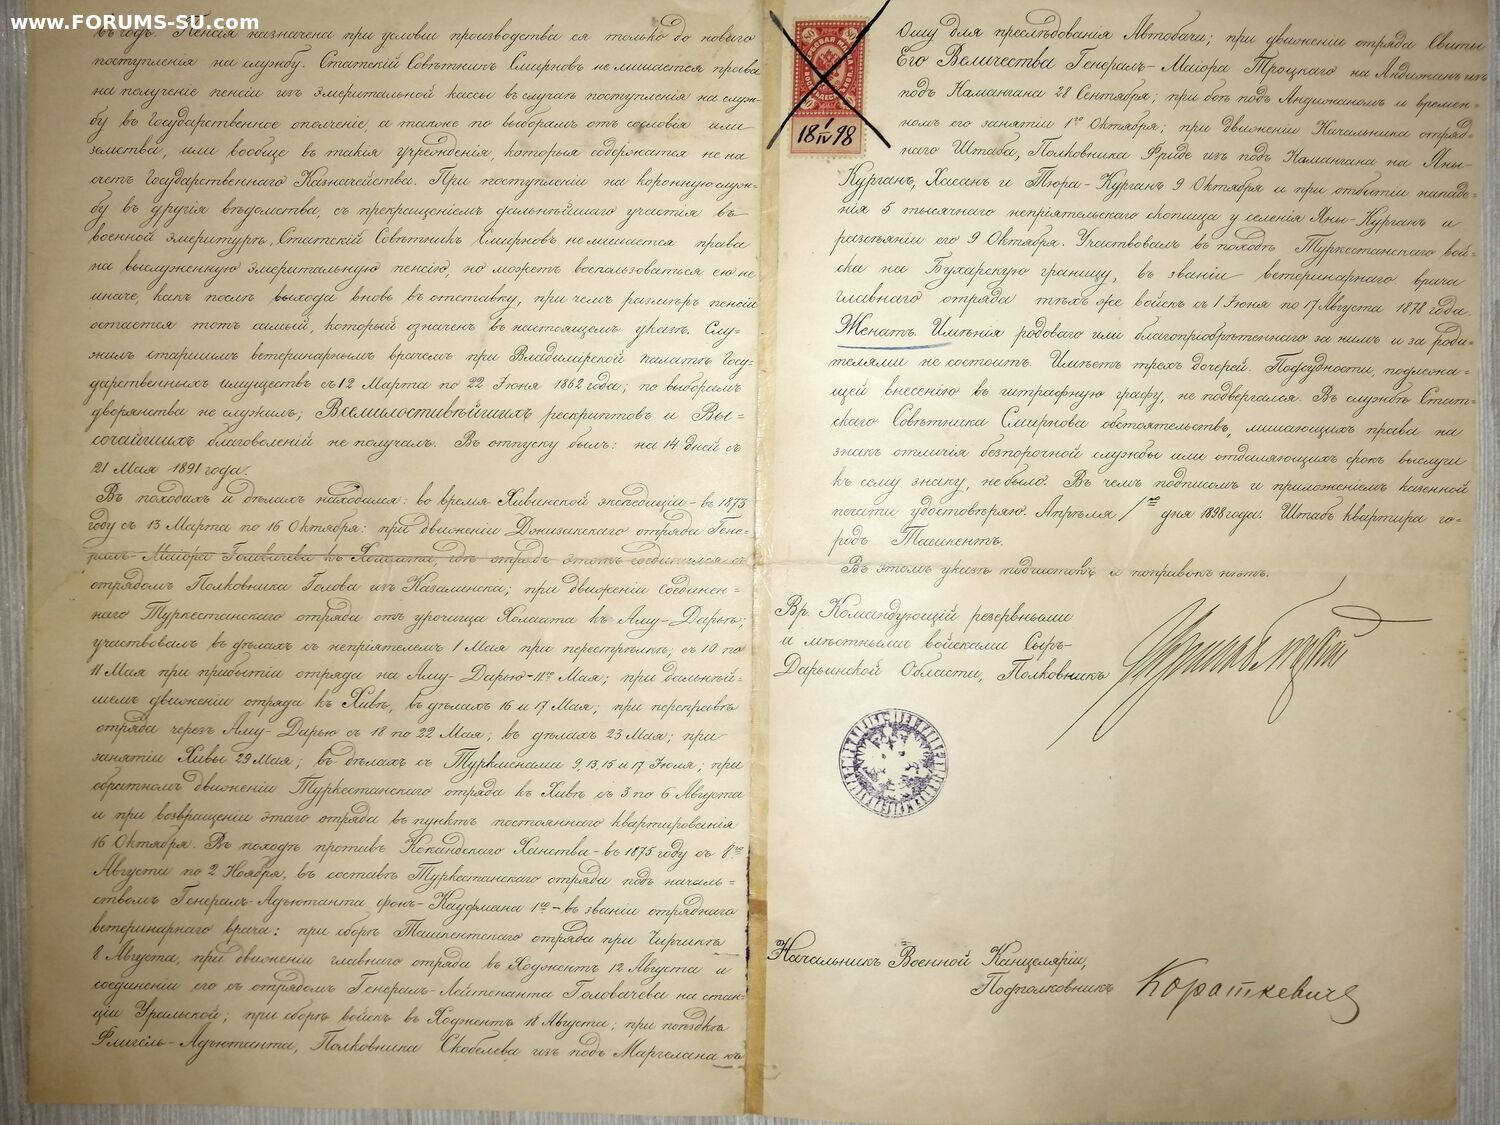 www.FORUMS-SU.com
въ годъ. Пенсія назначена при условіи производства ея только до новаго
поступленія на службу. Статскій Совѣтникъ Смирновъ не лишается права
на полученіе пенсіи изъ эмеритальной кассы въ случаѣ поступленія на служ-
бу въ Государственное ополченіе, а также по выборамъ отъ сословія или
земства, или вообще въ такія учрежденія, которыя содержатся не на
счетъ Государственнаго Казначейства. При поступленіи на коронную служ-
бу въ другія вѣдомства, съ прекращеніемъ дальнѣйшаго участія въ
военной эмеритурѣ, Статскій Совѣтникъ Смирновъ не лишается права
на выслуженную эмеритальную пенсію, но можетъ воспользоваться ею не
иначе, какъ послѣ выхода вновь въ отставку, при чемъ размѣръ пенсіи
остается тотъ самый, который означенъ въ настоящемъ указѣ. Слу-
жилъ старшимъ ветеринарнымъ врачемъ при Владимірской палатѣ Госу-
дарственныхъ имуществъ съ 12 Марта по 22 Іюня 1862 года; по выборамъ
дворянства не служилъ; Всемилостивѣйшихъ рескриптовъ и Вы-
сочайшихъ благоволеній не получалъ. Въ отпуску былъ: на 14 дней съ
21 Мая 1891 года.
Въ походахъ и дѣлахъ находился: во время Хивинской экспедиціи - въ 1873
году съ 13 Марта по 16 Октября: при движеніи Джизакскаго отряда Гене-
ралъ-Маіора Головачева къ Халаата, гдѣ отрядъ этотъ соединился съ
отрядомъ Полковника Голова изъ Казалинска; при движеніи соединен-
наго Туркестанскаго отряда отъ урочища Халаата къ Аму-Дарьѣ;
участвовалъ въ дѣлахъ съ непріятелемъ 1 Мая при перестрѣлкѣ; съ 10 по
11 Мая при прибытіи отряда на Аму-Дарью - 11го Мая; при дальнѣй-
шемъ движеніи отряда къ Хивѣ, въ дѣлахъ 16 и 17 Мая; при переправѣ
отряда черезъ Аму-Дарью съ 18 по 22 Мая; въ дѣлахъ 23 Мая; при
занятіи Хивы 29 Мая; въ дѣлахъ съ Туркменами 9, 13, 15 и 17 Іюля; при
обратномъ движеніи Туркестанскаго отряда къ Хивѣ съ 3 по 6 Августа
и при возвращеніи этаго отряда въ пунктъ постояннаго квартированія
16 Октября. Въ походѣ противъ Кокандскаго Ханства - въ 1875 году съ 8го
Августа по 2 Ноября, въ составѣ Туркестанскаго отряда подъ началь-
ствомъ Генералъ-Адъютанта фонъ-Кауфмана 1го - въ званіи отряднаго
ветеринарнаго врача: при сборѣ Ташкентскаго отряда при Чирчикѣ
8 Августа, при движеніи главнаго отряда въ Ходжентъ 12 Августа и
соединеніи его съ отрядомъ Генералъ-Лейтенанта Головачева на стан-
ціи Уральской; при сборѣ войскъ въ Ходжентѣ 18 Августа; при поѣздкѣ
Флигель-Адъютанта, Полковника Скобелева изъ подъ Маргелана къ
80
80
18 1/IV 98
Ошу для преслѣдованія Автобачи; при движеніи отряда Свиты
Его Величества Генералъ-Маіора Троцкаго на Андижанъ изъ
подъ Намангана 28 Сентября; при боѣ подъ Андижаномъ и времен-
номъ его занятіи 1го Октября; при движеніи Начальника отряд-
наго Штаба, Полковника Фриде изъ подъ Намангана на Яны-
Курганъ, Хасанъ и Тюра-Курганъ 9 Октября и при отбитіи нападе-
нія 5 тысячнаго непріятельскаго скопища у селенія Яны-Курганъ и
разсѣяніи его 9 Октября. Участвовалъ въ походѣ Туркестанскаго вой-
ска на Бухарскую границу, въ званіи ветеринарнаго врача
главнаго отряда тѣхъ же войскъ съ 1 Іюня по 17 Августа 1878 года.
Женатъ. Имѣнія родоваго или благопріобрѣтеннаго за нимъ и за роди-
телями не состоитъ. Имѣетъ трехъ дочерей. Подсудности, подлежа-
щей внесенію въ штрафную графу, не подвергался. Въ службѣ Стат-
скаго Совѣтника Смирнова обстоятельствъ, лишающихъ права на
знакъ отличія безпорочной службы или отдаляющихъ срокъ выслуги
къ сему знаку, не было. Въ чемъ подписомъ и приложеніемъ казенной
печати удостовѣряю. Апрѣля 1го дня 1898 года. Штабъ квартира го-
родъ Ташкентъ.
Въ этомъ указѣ подчистокъ и поправокъ нѣтъ.
Вр. Командующій резервными
и мѣстными войсками Сыръ-
Дарьинской Области, Полковникъ
Начальникъ Военной Канцеляріи,
Подполковникъ Кораткевичъ